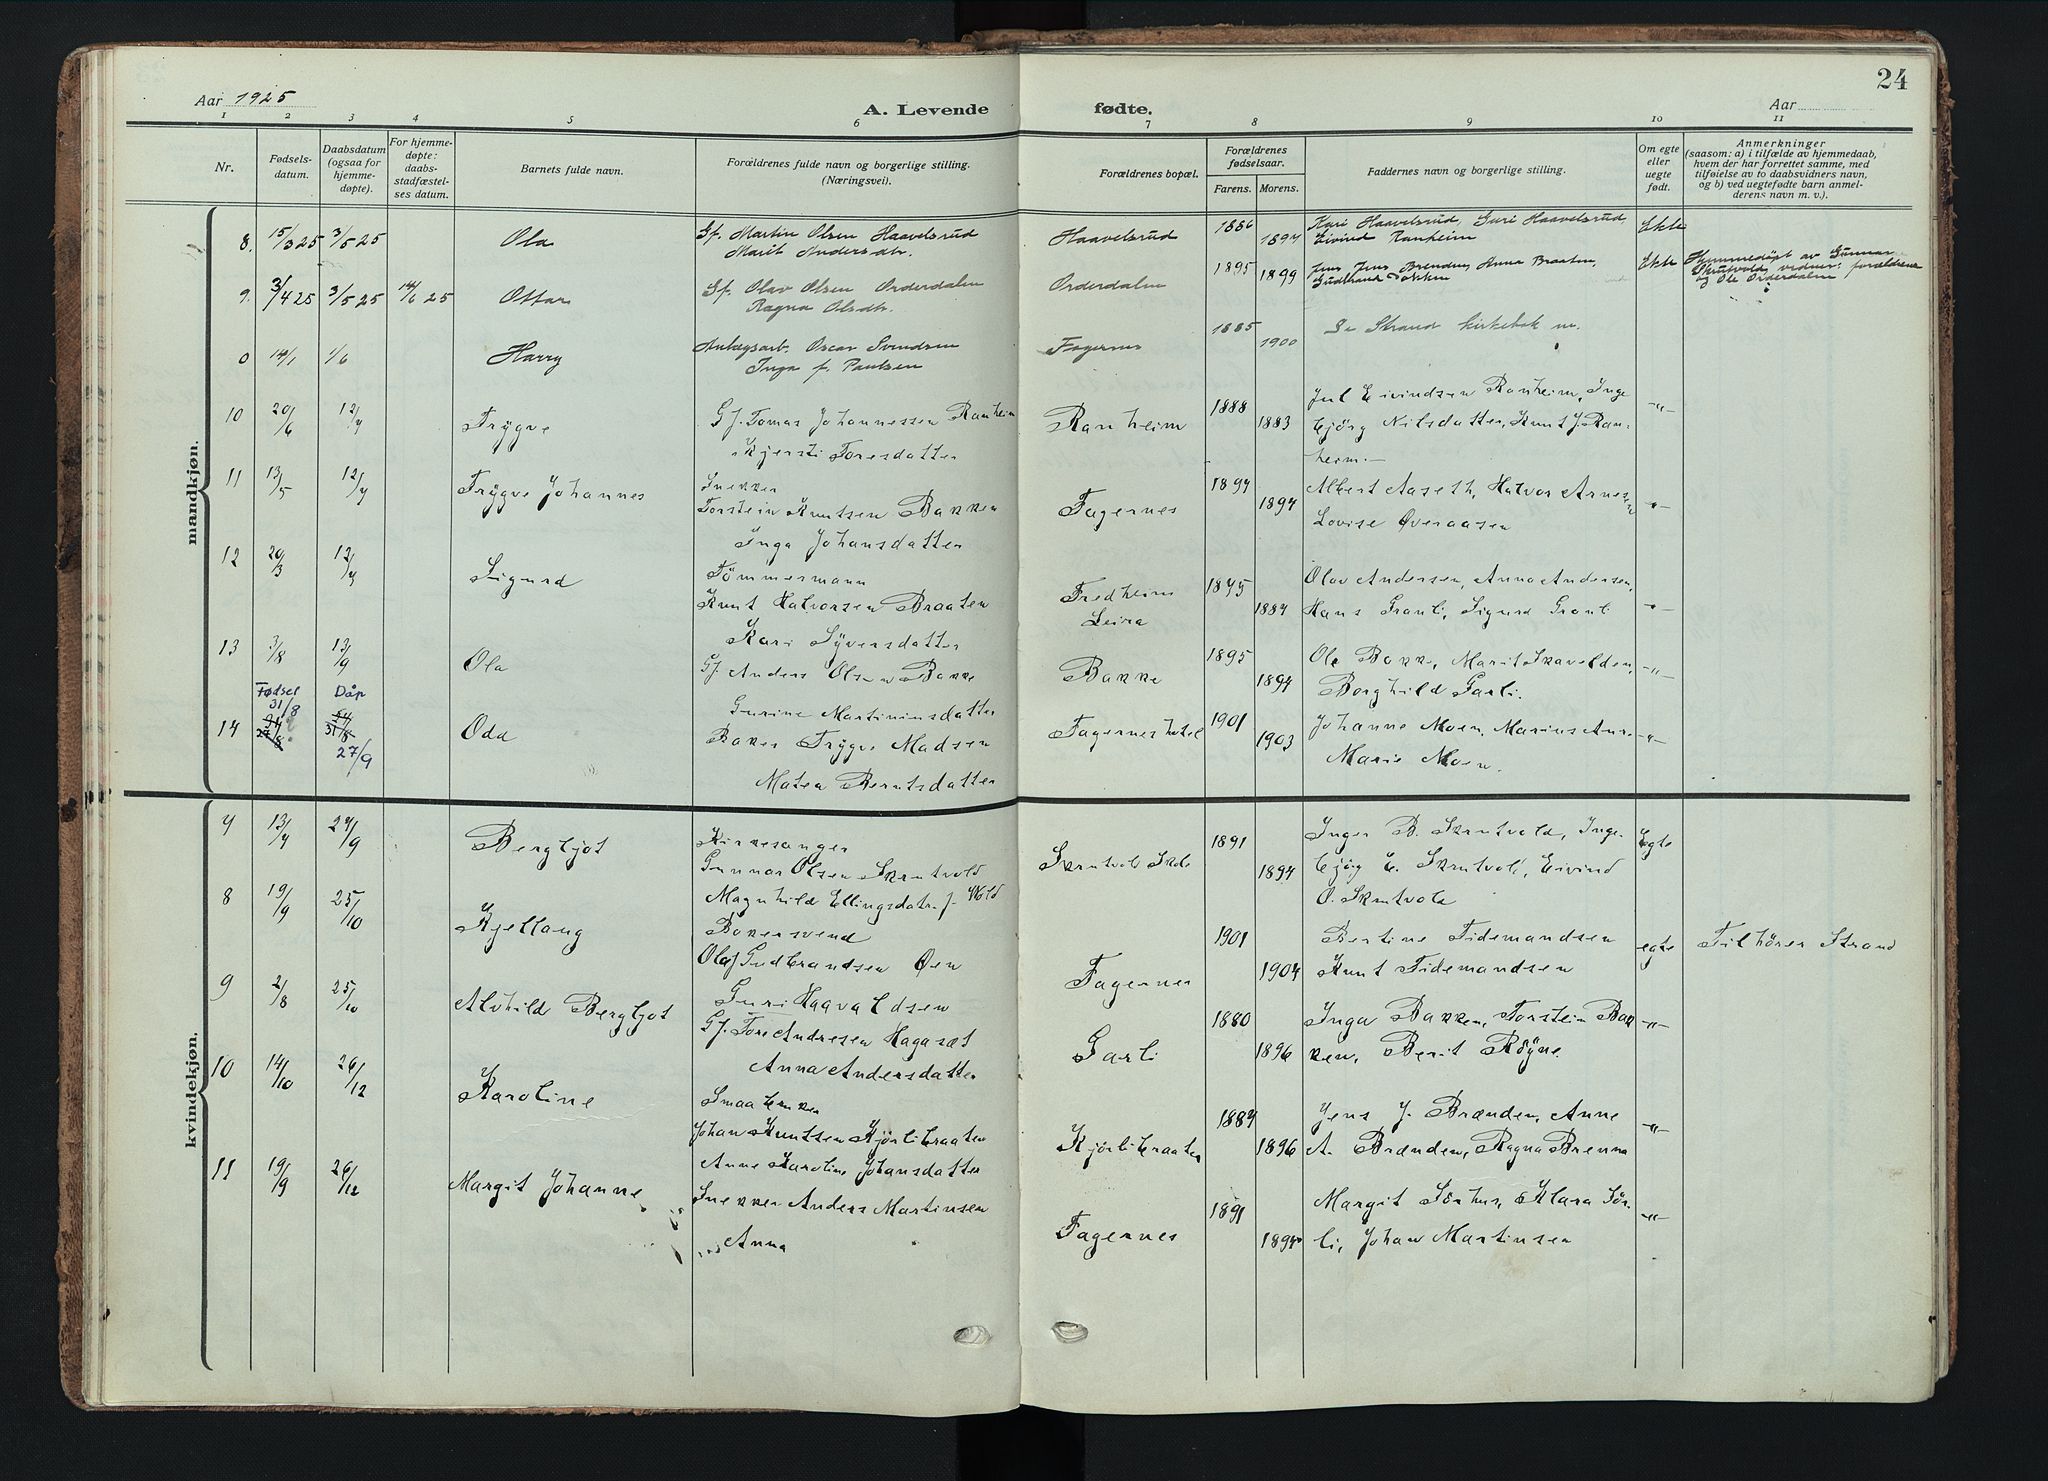 24
Aar 1925
A. Levende
fødte.
Aar
1 2 3 4 5 6 7 8 9 10 11
Nr.
Fødsels-
datum.
Daabsdatum
(ogsaa for
hjemme-
døpte).
For hjemme-
døpte:
daabs-
stadfæstel-
ses datum.
Barnets fulde navn.
Forældrenes fulde navn og borgerlige stilling.
(Næringsvei).
Forældrenes bopæl.
Forældrenes
fødselsaar.
Farens. Morens.
Faddernes navn og borgerlige stilling.
Om egte
eller
uegte
født.
Anmerkninger
(saasom: a) i tilfælde av hjemmedaab,
hvem der har forrettet samme, med
tilføielse av to daabsvidners navn,
og b) ved uegtefødte barn anmel-
derens navn m. v.).
mandkjøn.
8. 15/3 25 3/5 25 Ola Gf. Martin Olsen Haavelsrud Haavelsrud 1886 Kari Haavelsrud, Guri Haavelsrud Ekte
Marit Andersdtr. 1894 Eivind Ranheim
9. 3/4 25 3/5 25 14/6 25 Ottar Gf. Olav Olsen Orderdalen Orderdalen 1895 1899 Jens Brenden, Anna Braaten, Ekte Hjemmedøpt av Gunnar
Ragna Olsdtr. Gudbrand Skrutvold, vidner: forældrene
og Ole Orderdalen
0 14/1 1/6 Harry Anlægsarb. Oscar Svendsen Fagernes 1885 Se Strand kirkebok nr.
Inga f. Paulsen 1900
10 20/6 12/7 Trygve Gf. Tomas Johannessen Ranheim Ranheim 1888 Jul Eivindsen Ranheim, Inge -"-
Kjersti Toresdatter 1883 björg Nilsdatter, Knut J. Ran-
heim.-
11 13/5 12/7 Trygve Johannes Snekker Fagernes 1897 Albert Aaseth, Halvor Arnesen -"-
Torstein Knutsen Bakken 1897 Lovise Øveraasen
Inga Johansdatter
12 20/3 12/7 Sigurd Tömmermann Fredheim 1875 Olav Andersen, Anna Andersen,
Knut Halvorsen Braaten Leira 1887 Hans Granli, Sigurd Granli -"-
Kari Syversdatter
13 3/8 13/9 Ola Gf. Anders Olsen Bakke Bakke 1895 Ole Bakke, Marit Skavelden, -"-
Gurine Martiniusdatter 1897 Borghild Garli.
Fødsel Dåp
31/8
14 27/8 31/8 27/9 Oda Baker Trygve Madsen Fagernes hotel 1901 Johanne Moen, Marius -"-
Matea Berntsdatter 1903 Marie Moen.
kvindekjøn.
7 13/7 27/9 Bergljot Kirkesanger Skrutvold Skole 1891 Inger B. Skrutvold, Inge- Egte
Gunnar Olsen Skrutvold 1897 bjög E. Skrutvold, Eivind
Magnhild Ellingsdatr. f. Wold O. Skrutvold
8 19/9 25/10 Kjellaug Bakersvend Fagernes 1901 Bertine Tidemandsen egte Tilhörer Strand
Olaf Gudbrandsen Øen 1904 Knut Tidemandsen
Guri Hagvaldsen
9 2/8 25/10 Alvhild Bergljot Gf. Tore Andresen Hagaset Garli 1880 Inga Bakken, Torstein Bak -"-
Anna Andersdatter 1896 ken, Berit Röyne
10 14/10 26/12 Karoline Smaabruker Kjörlibraaten 1887 Jens J. Brænden, Anne -"-
Johan Knutsen Kjörlibraaten 1896 A. Brænden, Ragna Brenna
Anne Karoline Johansdatter
11 19/9 26/12 Margit Johanne Snekker Anders Martinsen Fagernes 1891 Margit Sörhus, Klara Sör- -"-
Anna 1890 li, Johan Martinsen